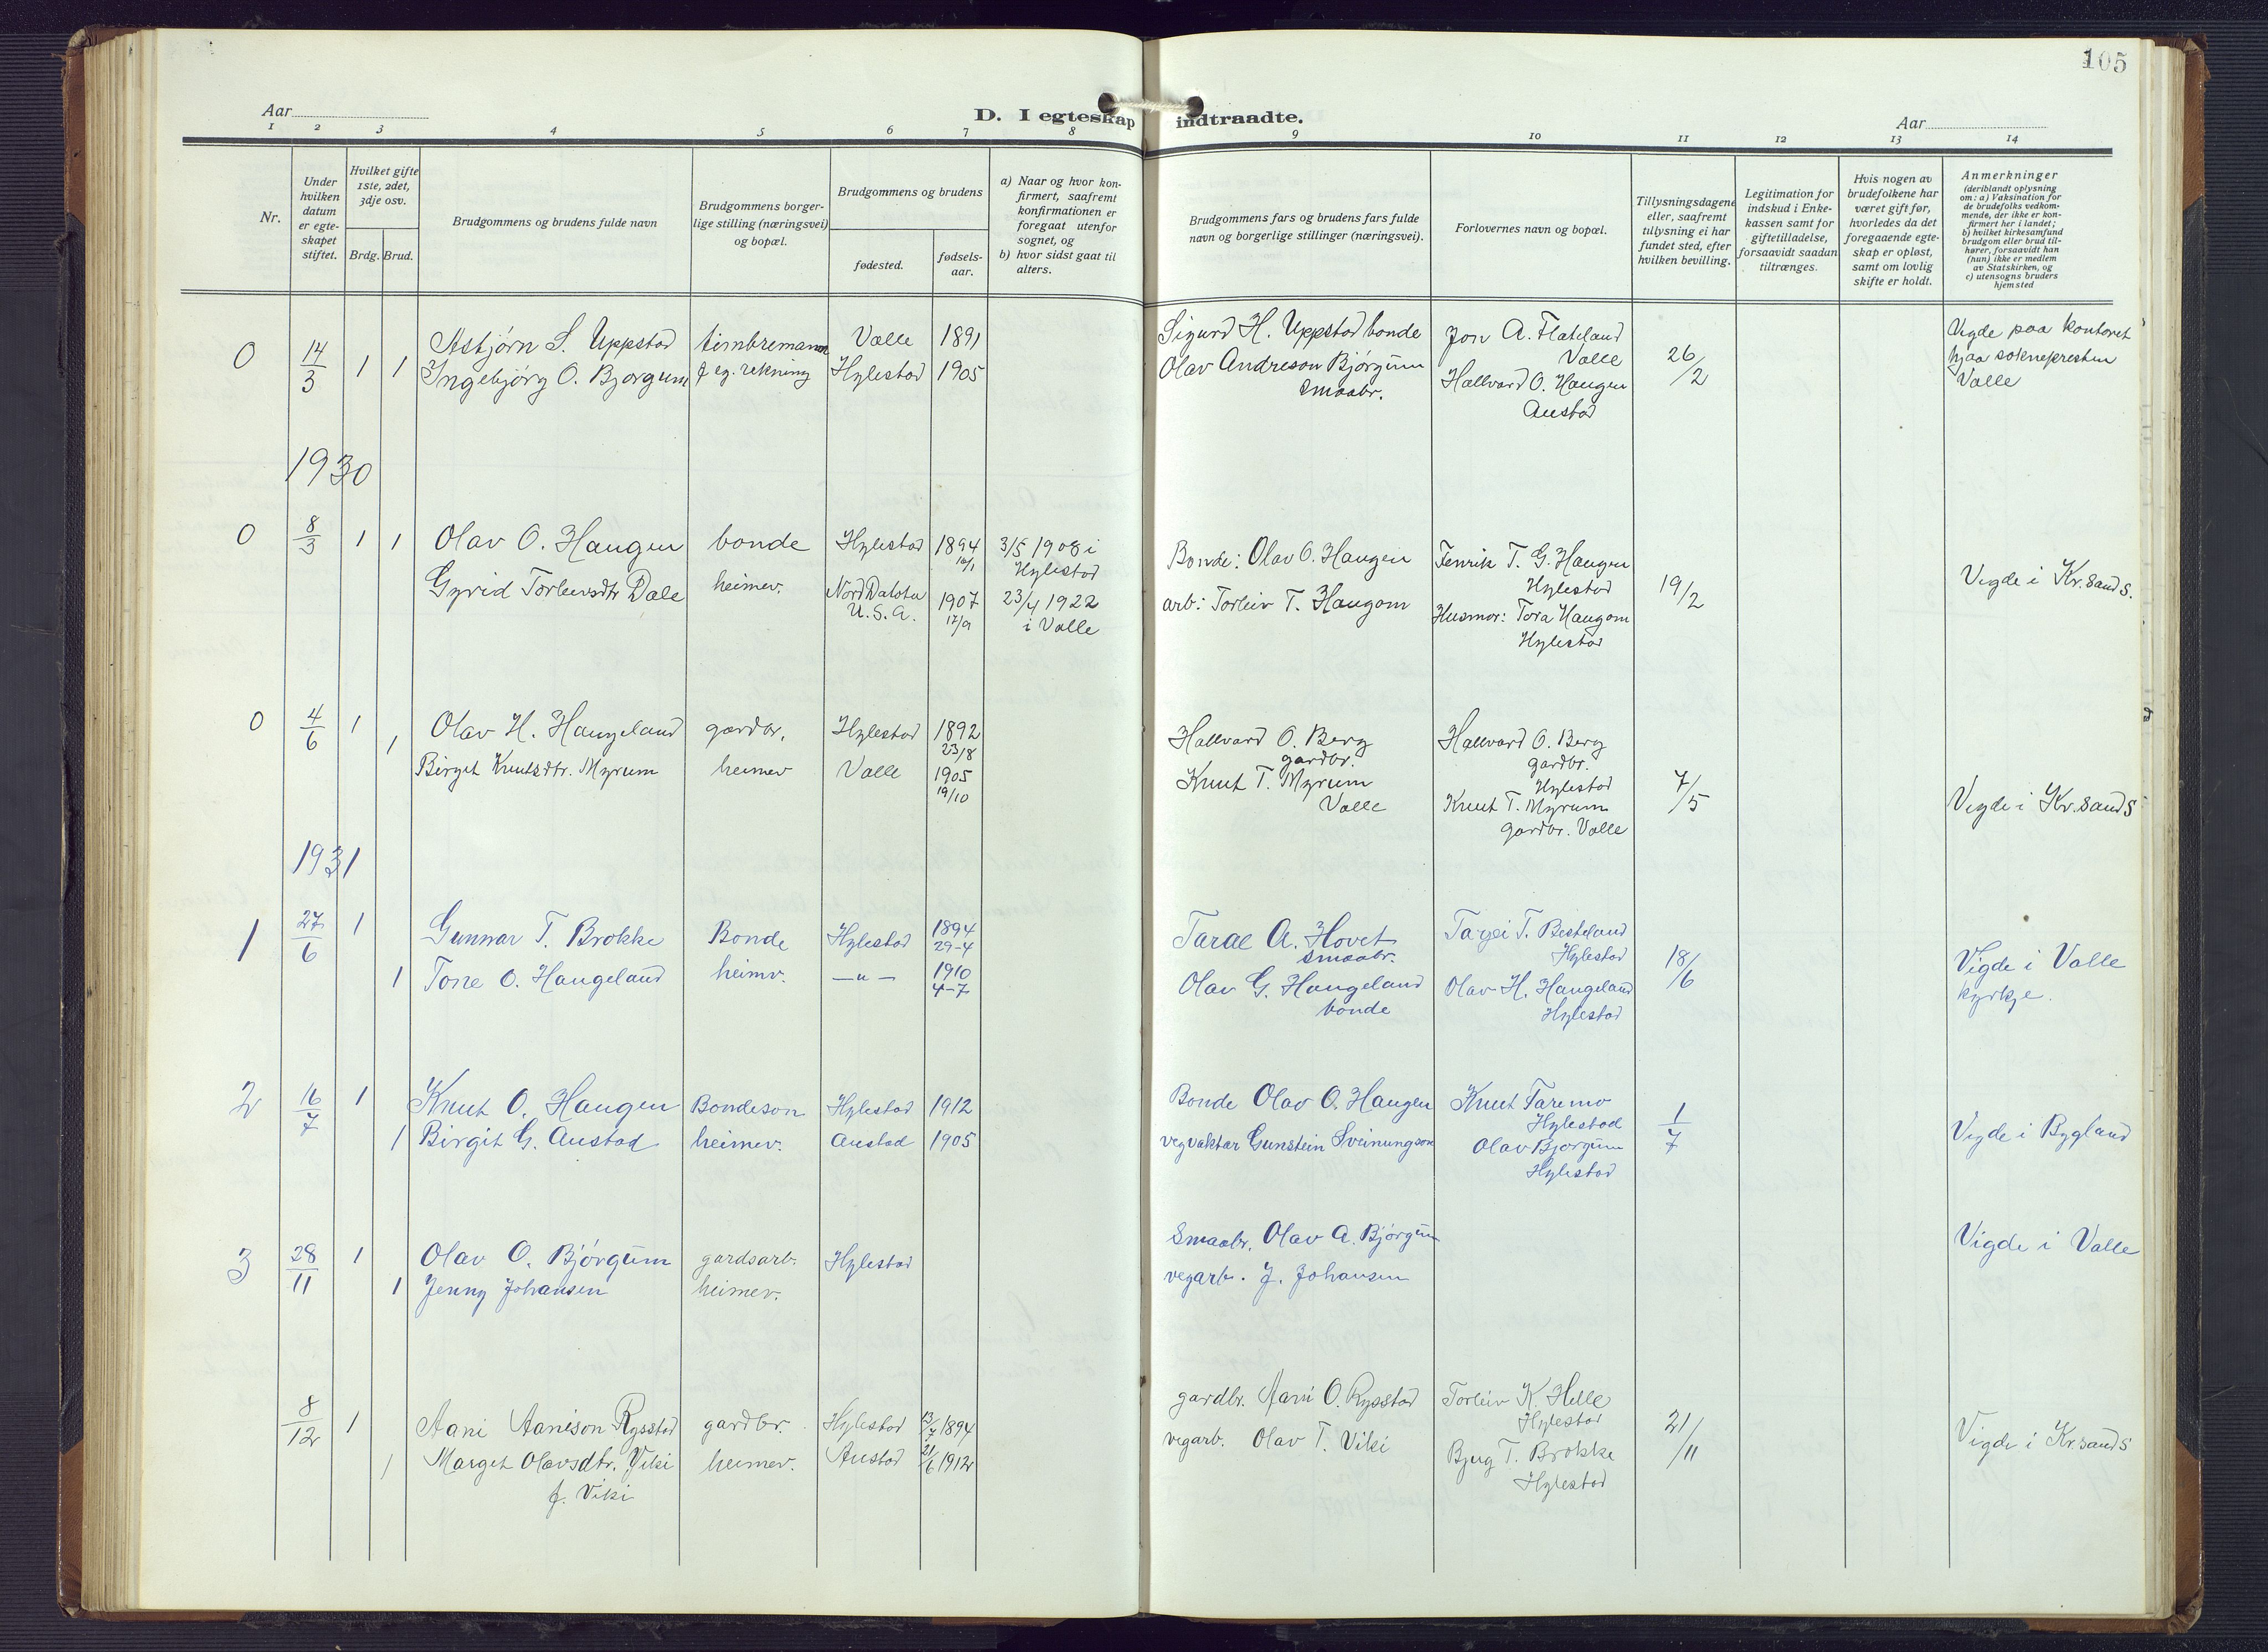 105
Aar
D. I egteskap indtraadte.
Aar
1 2 3 4 5 6 7 8 9 10 11 12 13 14
Nr.
Under
hvilken
datum
er egte-
skapet
stiftet.
Hvilket gifte
1ste, 2det,
3dje osv.
Brdg. Brud.
Brudgommens og brudens fulde navn
Brudgommens borger-
lige stilling (næringsvei)
og bopæl.
Brudgommens og brudens
fødested.
fødsels-
aar.
a) Naar og hvor kon-
firmert, saafremt
konfirmationen er
foregaat utenfor
sognet, og
b) hvor sidst gaat til
alters.
Brudgommens fars og brudens fars fulde
navn og borgerlige stillinger (næringsvei).
Forlovernes navn og bopæl.
Tillysningsdagene
eller, saafremt
tillysning ei har
fundet sted, efter
hvilken bevilling.
Legitimation for
indskud i Enke-
kassen samt for
giftetilladelse,
forsaavidt saadan
tiltrænges.
Hvis nogen av
brudefolkene har
været gift før,
hvorledes da det
foregaaende egte-
skap er opløst,
samt om lovlig
skifte er holdt.
Anmerkninger
(deriblandt oplysning
om: a) Vaksination for
de brudefolks vedkom-
mende, der ikke er kon-
firmert her i landet;
b) hvilket kirkesamfund
brudgom eller brud til-
hører, forsaavidt han
(hun) ikke er medlem
av Statskirken, og
c) utensogns bruders
hjemsted
0 14/3 1 1
Asbjörn S. Uppstad timbremann Valle 1891
Ingebjörg O. Bjorgum f eg. rekning Hylestad 1905
Sigurd H. Uppstad bonde
Olav Andreson Bjórgum
smaabr.
Jon A. Flateland
Valle
Hallvard O. Haugen
Austad
26/2
Vigde paa kontoret
hjaa soknepresten
Valle
1930
0 8/3 1 1
Olav O. Haugen bonde Hylestad 1894
16/1
3/5 1908 i
Hylestad
Gyrid Torleivsdtr Dale heimev. Nord Dakota
U.S.A.
1907
17/9
23/4 1922
i Valle
Bonde: Olav O. Haugen
arb: Torleiv T. Haugom
Fenrik T. G. Haugen
Hylestad
Husmor: Tora Haugom
Hylestad
19/2
Vigde i Kr.sand S.
0 4/6 1 1
Olav H. Haugeland gardbr. Hylestad 1892
23/8
Birgit Knutsdtr. Myrum heimev Valle 1905
19/10
Hallvard O. Berg
gardbr.
Knut T. Myrum
Valle
Hallvard O. Berg
gardbr.
Hylestad
Knut T. Myrum
gardbr. Valle
7/5
Vigde i Kr.sand S
1931
1 27/6 1
Gunnar T. Brokke Bonde Hylestad 1894
29-4
1 Tone O. Haugeland heimv. —"— 1910
4-7
Taral A. Hovet
smaabr.
Olav G. Haugeland
bonde
Targei T. Besteland
Hylestad
Olav H. Haugeland
Hylestad
18/6
Vigde i Valle
kyrkje.
2 16/7 1
Knut O. Haugen Bondeson Hylestad 1912
1 Birgit G. Austad heimev. Austad 1905
Bonde Olav O. Haugen
vegvaktar Gunstein Sveinungson
Knut Faremo
Hylestad
Olav Bjorgum
Hylestad
1/7
Vigde i Bygland
3 28/11 1
Olav O. Bjórgum gardsarb. Hylestad
1 Jenny Johansen heimev.
Smaabr. Olav A. Bjórgum
vegarb. J. Johansen
Vigde i Valle
8/12 1
Aani Aanison Rysstad gardbr. Hylestad 13/7 1894
1 Margit Olavsdtr. Viki heimev. Austad 21/6 1912
f. Viki
gardbr. Aani O. Rysstad
vegarb. Olav T. Viki
Torleiv K. Helle
Hylestad
Bjug T. Brokke
Hylestad
21/11
Vigde i Kr.sand S